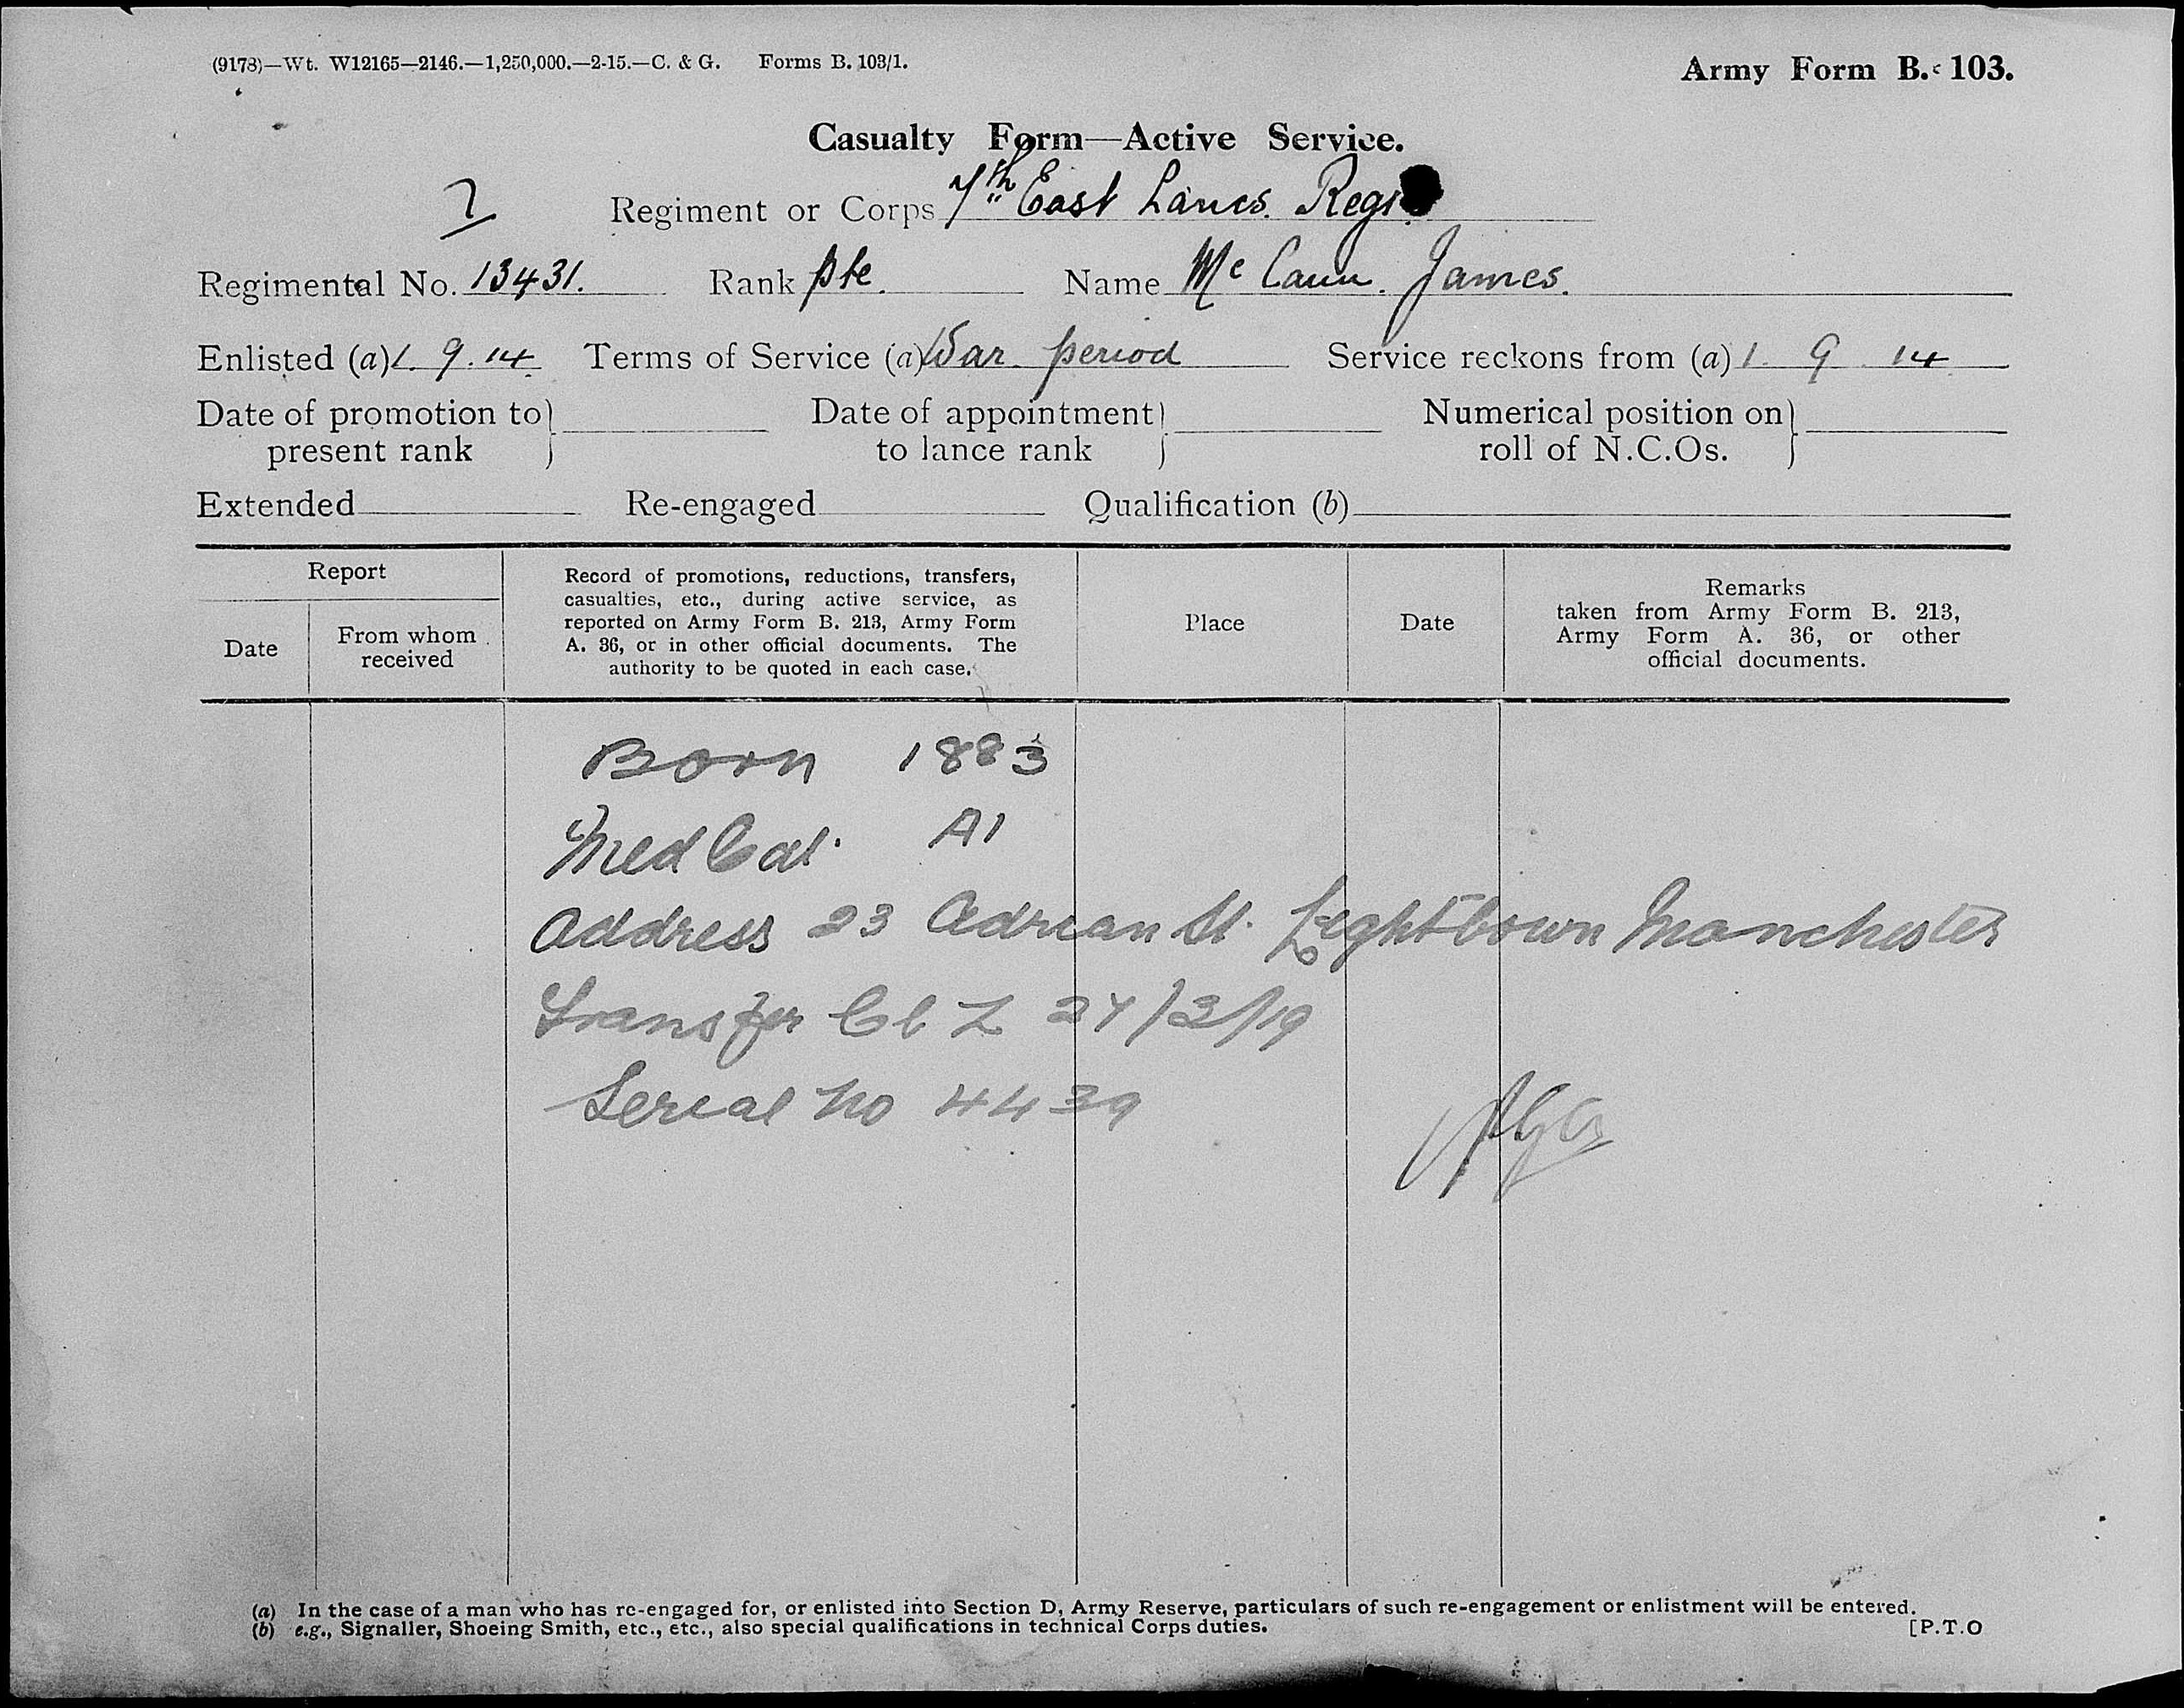 (9178)—Wt. W12165—2146.—1,250,000.—2-15.—C. & G. Forms B. 103/1.
Army Form B. 103.
Casualty Form—Active Service.
Regiment or Corps 7th East Lancs. Regt
Regimental No. 13431. Rank Pte. Name Mc Cann. James.
Enlisted (a) 1. 9. 14. Terms of Service (a) War period Service reckons from (a) 1. 9. 14
Date of promotion to present rank
Date of appointment to lance rank
Numerical position on roll of N.C.Os.
Extended Re-engaged Qualification (b)
Report
Date
From whom
received
Record of promotions, reductions, transfers,
casualties, etc., during active service, as
reported on Army Form B. 213, Army Form
A. 36, or in other official documents. The
authority to be quoted in each case.
Place
Date
Remarks
taken from Army Form B. 213,
Army Form A. 36, or other
official documents.
Born 1883
Med Cat. A1
Address 23 Adrian St. Lightbown Manchester
Transfer Cl Z 24/3/19
Serial No 4439
(a) In the case of a man who has re-engaged for, or enlisted into Section D, Army Reserve, particulars of such re-engagement or enlistment will be entered.
(b) e.g., Signaller, Shoeing Smith, etc., etc., also special qualifications in technical Corps duties.
[P.T.O